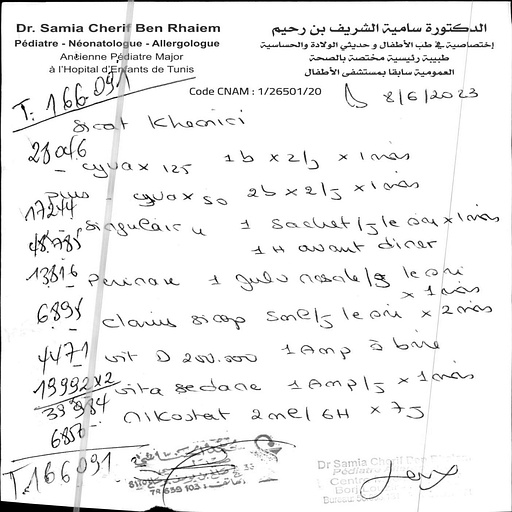 Dr. Samia Cherif Ben Rhaiem
Pédiatre - Néonatologue - Allergologue
Ancienne Pédiatre Major
à l'Hopital d'Enfants de Tunis
الدكتورة سامية الشريف بن رحيم
إختصاصية في طب الأطفال و حديثي الولادة والحساسية
طبيبة رئيسية مختصة بالصحة
العمومية سابقا بمستشفى الأطفال
Code CNAM : 1/26501/20
T: 166.091
8/6/2023
28046
cyvax 125 1b x 2/j x 1 mois
plus cyvax 50 2b x 2/j x 1 mois
17244
singulair 4 1 sachet/j le soir x 1 mois
48.785
1H avant diner
13816
1 nasale/j le soir
x 1 mois
6895
sirop 5ml/j le soir x 2 mois
4471
vit D 200.000 1 Amp à boire
19992x2
vita sedane 1 Amp/j x 1 mois
39984
2ml/6H x 7j
6850
T.166091
Dr Samia Cherif Ben